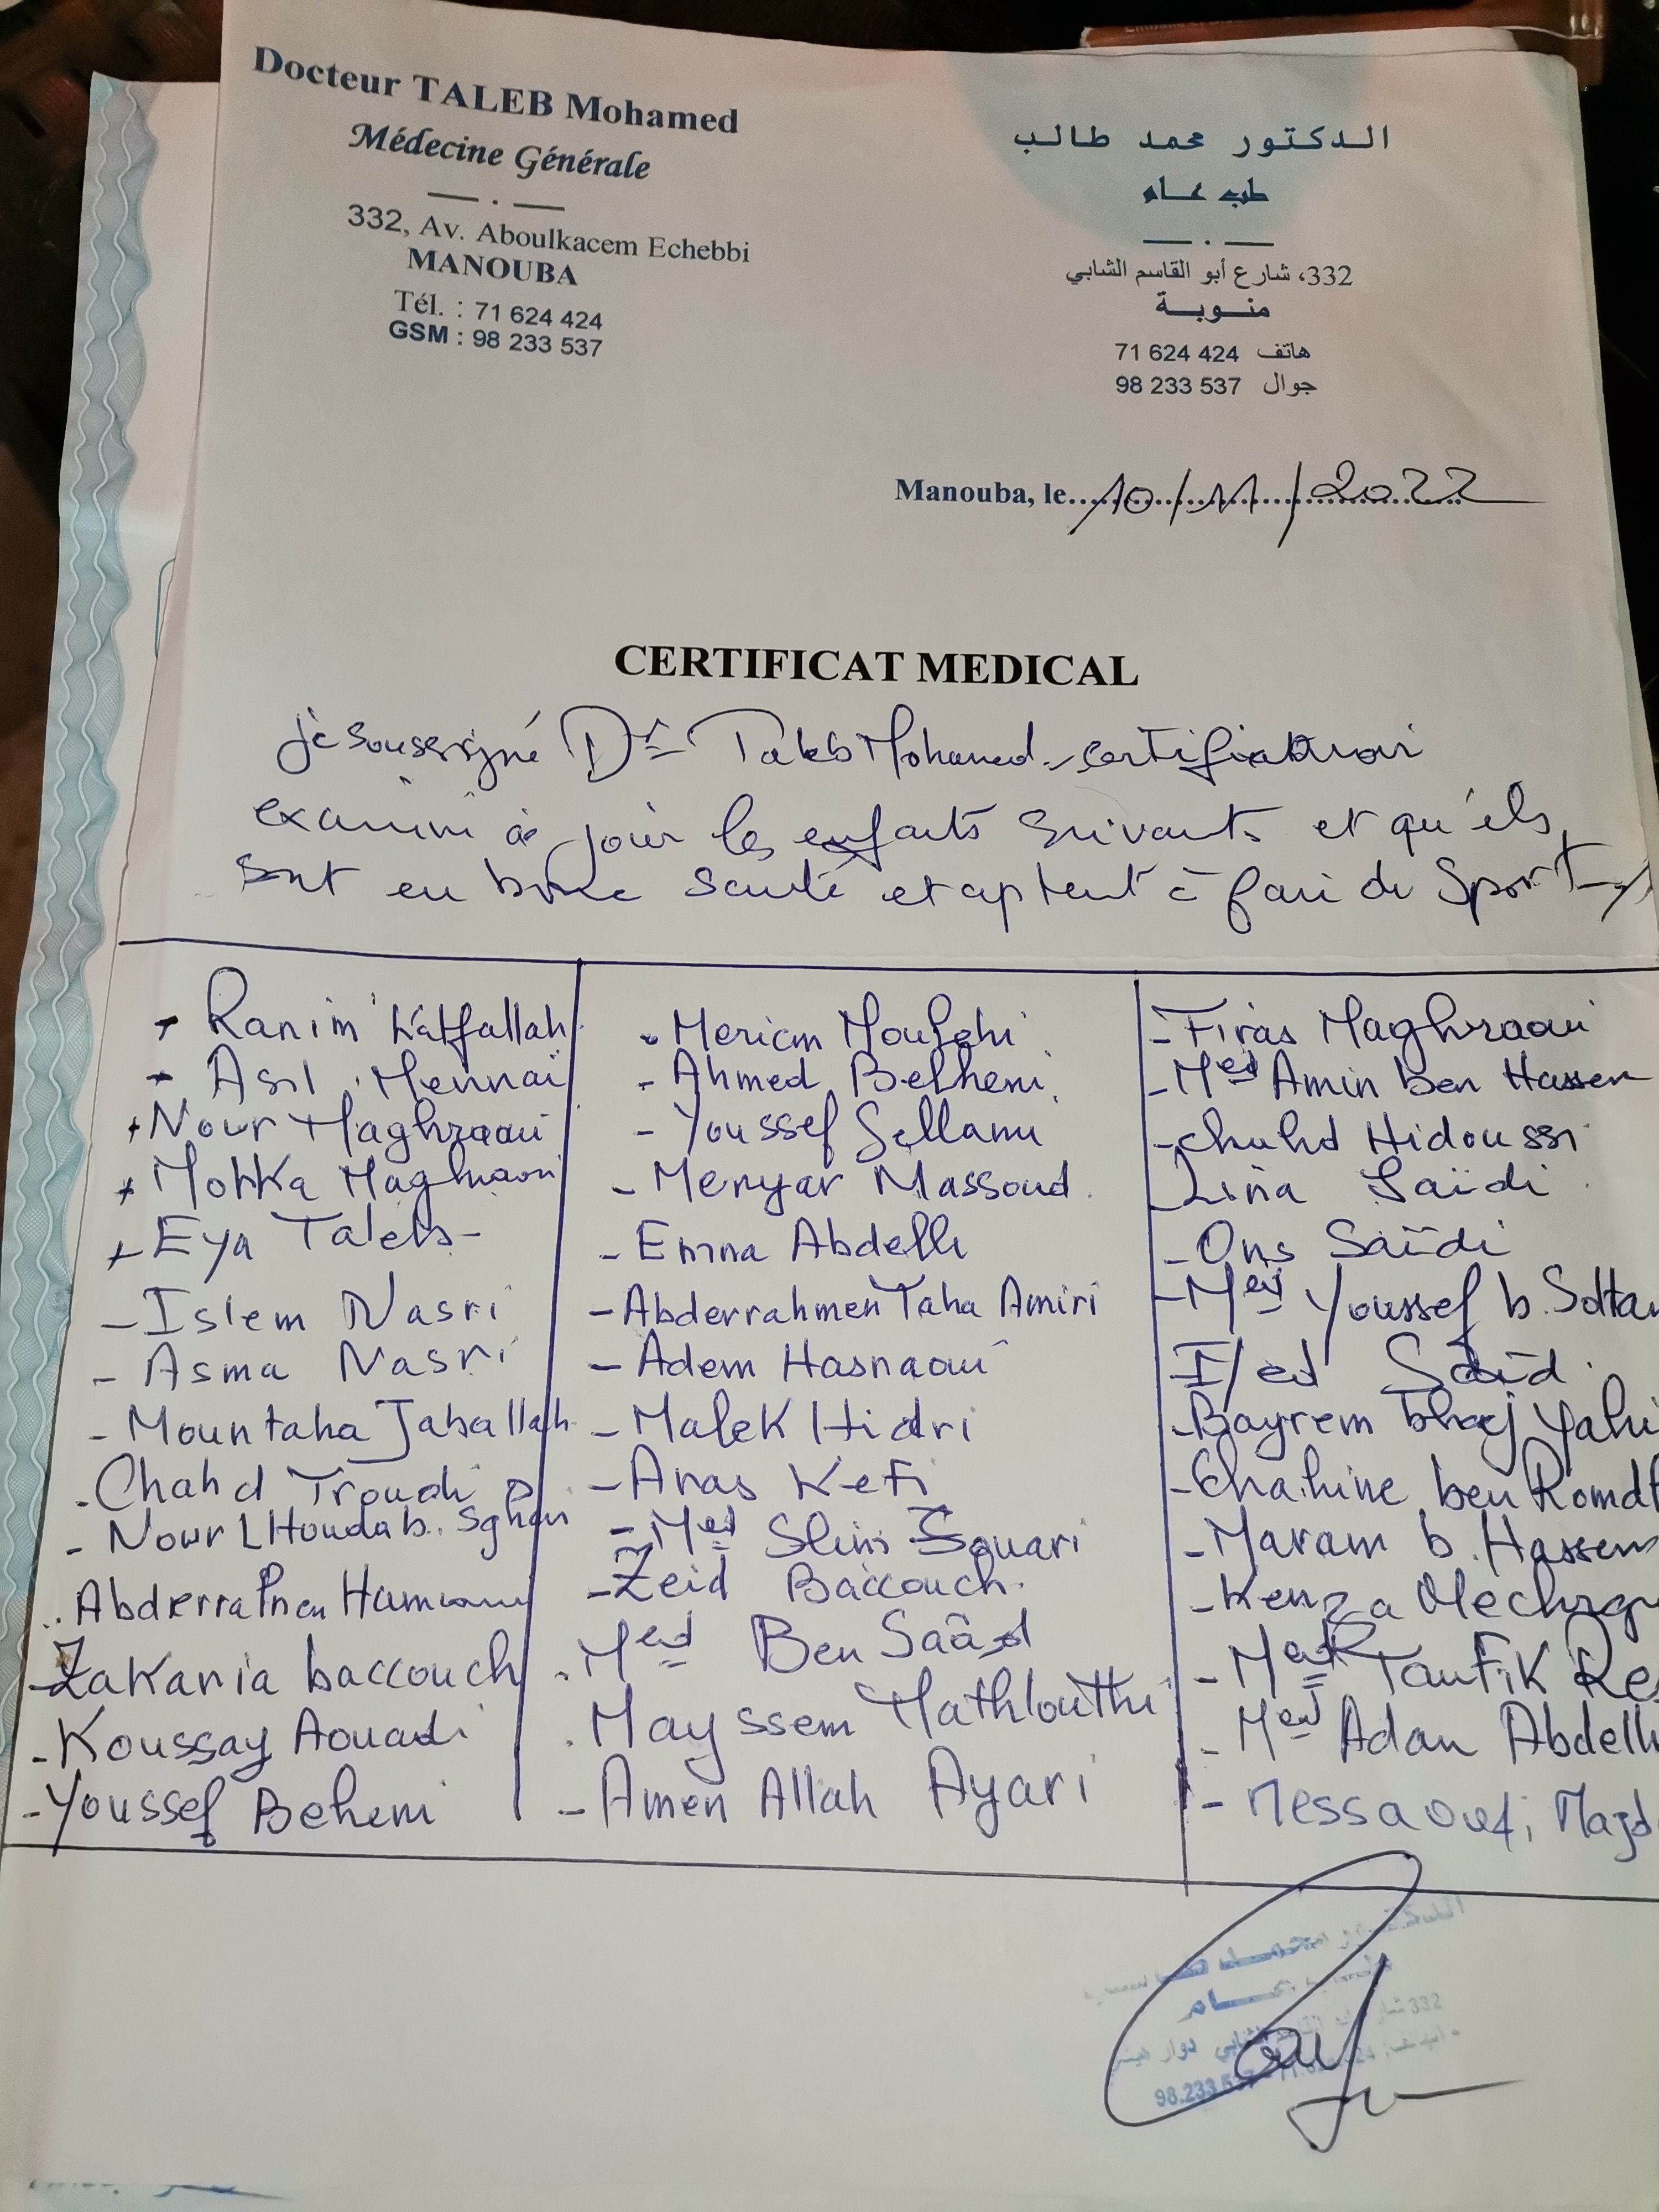 Docteur TALEB Mohamed
Médecine Générale
332, Av. Aboulkacem Echebbi
MANOUBA
Tél. : 71 624 424
GSM : 98 233 537
الدكتور محمد طالب
طب عام
332، شارع أبو القاسم الشابي
منوبة
هاتف 71 624 424
جوال 98 233 537
Manouba, le 10/11/2022
CERTIFICAT MEDICAL
je soussigné Dr Taleb Mohamed certifie avoir
examiné ce jour les enfants suivants et qu'ils
sont en bonne santé et aptent à faire du Sport
- Ranim
- Asil Mennaï
- Nour Maghraoui
- Mokka Maghraoui
- Eya Taleb
- Islem Nasri
- Asma Nasri
- Mountaha Jaballah
- Chahd Troudi
- Nour L Houda b.
- Abderrahmen
- Zakaria baccouch
- Koussay Aouadi
- Youssef Behemi
- Meriem
- Ahmed Belhemi
- Youssef Sellami
- Menyar Massoud
- Emna Abdelli
- Abderrahmen Taha Amiri
- Adem Hasnaoui
- Malek Hidri
- Anas Kefi
- Med Slim Souari
- Zeid Baccouch
- Med Ben Saâd
Mayssem Mathlouthi
- Amen Allah Ayari
- Firas Maghraoui
- Med Amin ben Hassen
- chahd Hidoussi
- Lina Saïdi
- Ons Saïdi
- Med Youssef b. Soltan
Saïd
- Bayrem bhaj Yahi
- Chahine ben Romdh
- Maram b. Hassen
- Kenza
- Med Taufik Re
- Med Adan Abdelli
- Messaoudi Majd
332
98.233.537